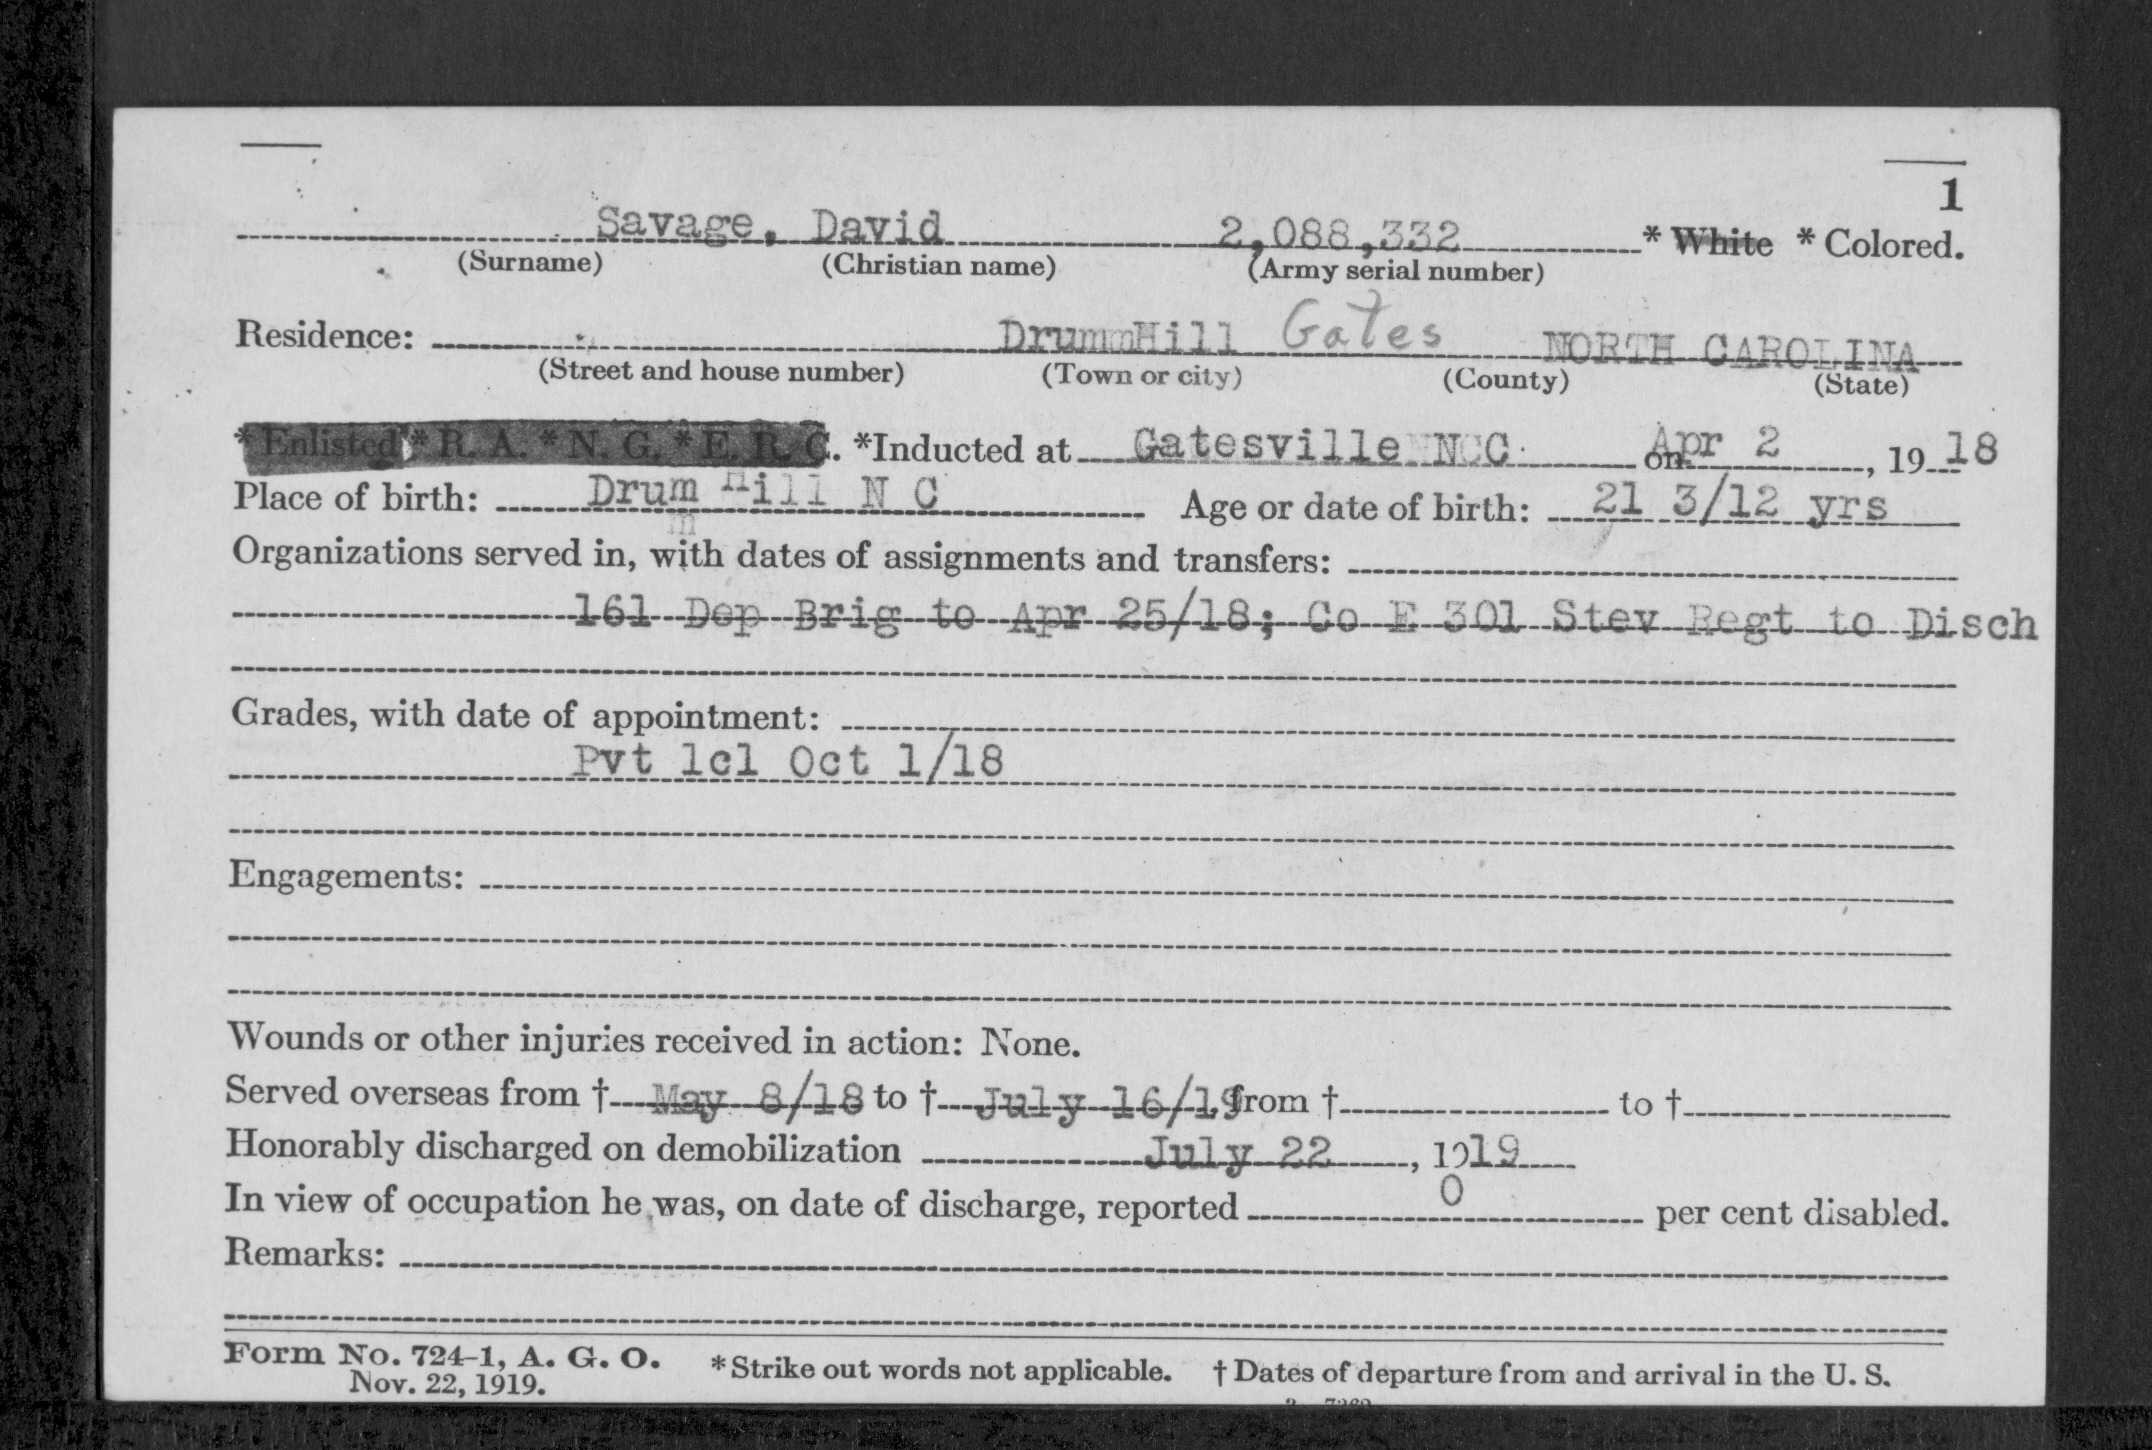 1
Savage, David 2,088,332 * White * Colored.
(Surname) (Christian name) (Army serial number)
Residence: Drumm Hill Gates NORTH CAROLINA
(Street and house number) (Town or city) (County) (State)
* Enlisted * R. A. * N. G. * E. R. C. *Inducted at Gatesville N C on Apr 2, 19 18
Place of birth: Drum Hill N C Age or date of birth: 21 3/12 yrs
m
Organizations served in, with dates of assignments and transfers:
161 Dep Brig to Apr 25/18; Co E 301 Stev Regt to Disch
Grades, with date of appointment:
Pvt 1cl Oct 1/18
Engagements:
Wounds or other injuries received in action: None.
Served overseas from † May 8/18 to † July 16/19 from † to †
Honorably discharged on demobilization July 22, 1919
In view of occupation he was, on date of discharge, reported 0 per cent disabled.
Remarks:
Form No. 724-1, A. G. O. * Strike out words not applicable. † Dates of departure from and arrival in the U. S.
Nov. 22, 1919.